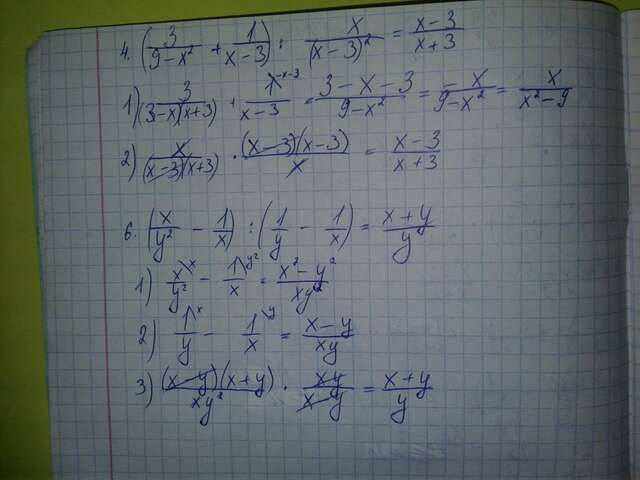 4. (3/(9-x²) + 1/(x-3)) : x/(x-3)² = (x-3)/(x+3)
1) 3/((3-x)(x+3)) + 1^(x-3)/(x-3) = (3-x-3)/(9-x²) = -x/(9-x²) = x/(x²-9)
2) x/((x-3)(x+3)) · ((x-3)(x-3))/x = (x-3)/(x+3)
6. (x/y² - 1/x) : (1/y - 1/x) = (x+y)/y
1) x^x/y² - 1^y²/x = (x²-y²)/xy²
2) 1^x/y - 1^y/x = (x-y)/xy
3) ((x-y)(x+y))/xy² · xy/(x-y) = (x+y)/y